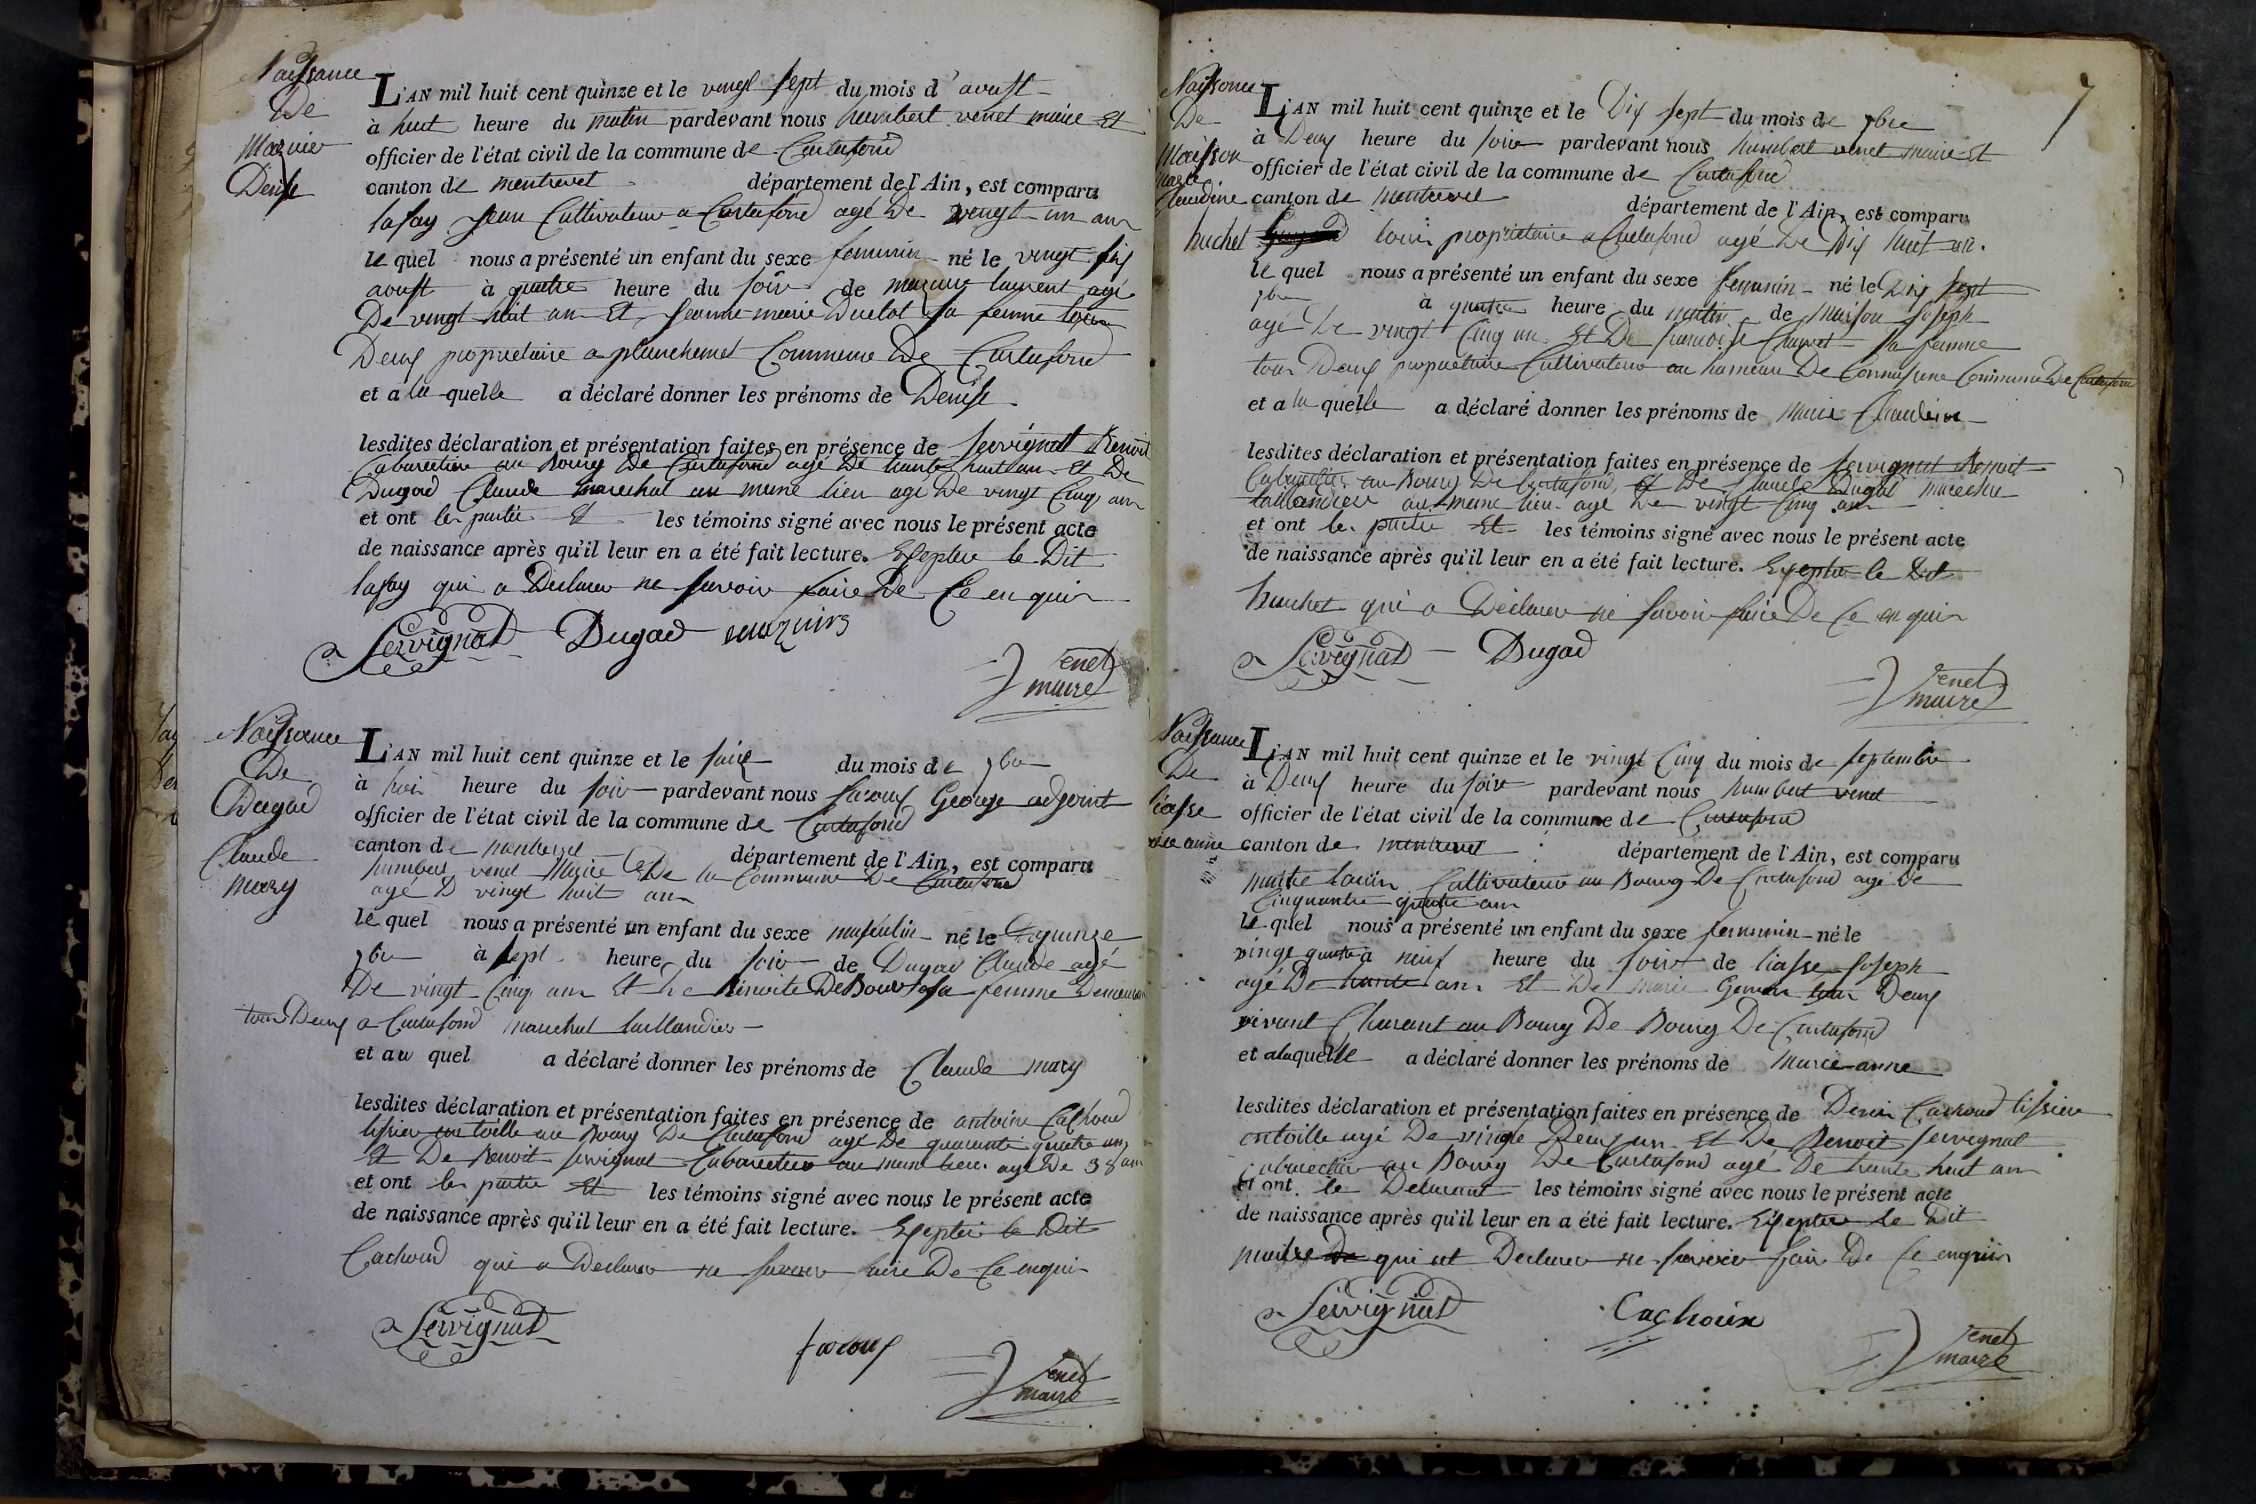 Naissance
De
Mazuir
Denise
L'AN mil huit cent quinze et le vingt sept du mois d'avust
à huit heure du matin pardevant nous humbert venet maire Et
officier de l'état civil de la commune de Curtafond
canton de montrevel département de l'Ain, est comparu
lafay jean Cultivateur a Curtafond agé De vingt un an
le quel nous a présenté un enfant du sexe feminin né le vingt six
avust à quatre heure du soir de mazuir laurent agé
De vingt huit an Et jeanne marie Duclot sa femme tous
Deux propriétaire a planchemel Commune De Curtafond
et a la quelle a déclaré donner les prénoms de Denise
lesdites déclaration et présentation faites en présence de servignat Benoit
Cabaretier au Bourg De Curtafond agé De trante huit an Et De
Dugad Claude marechal au meme lieu agé De vingt Cinq an
et ont les partie Et les témoins signé avec nous le présent acte
de naissance après qu'il leur en a été fait lecture. Exeptée le Dit
lafay qui a Declarer ne savoir faire De Ce enquir
Servignat Dugad mazuir
venet
maire
Naissance
De
Dugad
Claude
mary
L'AN mil huit cent quinze et le saize du mois de 7bre
à troi heure du soir pardevant nous George adjoint
officier de l'état civil de la commune de Curtafond
canton de montrevel département de l'Ain, est comparu
humbert venet Maire De la Commune De Curtafond
agé D vingt huit an
le quel nous a présenté un enfant du sexe masculin né le quinze
7bre à sept heure du soir de Dugad Claude agé
De vingt Cinq an Et De Benoite DeBour sa femme Demeurant
tous Deux a Curtafond marechal taillandier
et au quel a déclaré donner les prénoms de Claude mary
lesdites déclaration et présentation faites en présence de antoine Cachoud
tissier en toille au Bourg De Curtafond agé De quarante quatre an
Et De Benoit servignat Cabaretier au meme lieu agé De 38 an
et ont les partie Et les témoins signé avec nous le présent acte
de naissance après qu'il leur en a été fait lecture. Exeptée le Dit
Cachoud qui a Declarer ne savoir faire De Ce enquir
Servignat
venet
maire
7
Naissance
De
Maison
marie
Claudine
L'AN mil huit cent quinze et le Dix sept du mois de 7bre
à Deux heure du soir pardevant nous humbert venet maire Et
officier de l'état civil de la commune de Curtafond
canton de montrevel département de l'Ain, est comparu
huchet louis propriétaire a Curtafond agé De Dix huit an.
le quel nous a présenté un enfant du sexe feminin né le Dix sept
7bre à quatre heure du matin de maison joseph
agé De vingt Cinq an Et De francoise Chanel sa femme
tous Deux propriétaire Cultivateur au hameau De Commune De Curtafond
et a la quelle a déclaré donner les prénoms de marie Claudine
lesdites déclaration et présentation faites en présence de servignat Benoit
Cabaretier au Bourg De Curtafond, et De Claude Dugad marechal
taillandier au meme lieu agé De vingt Cinq an
et ont les partie Et les témoins signé avec nous le présent acte
de naissance après qu'il leur en a été fait lecture. Exeptée le Dit
huchet qui a Déclarer ne savoir faire De Ce enquir
Servignat Dugad
venet
maire
Naissance
De
liasse
marie anne
L'AN mil huit cent quinze et le vingt Cinq du mois de septembre
à Deux heure du soir pardevant nous humbert venet
officier de l'état civil de la commune de Curtafond
canton de montrevel département de l'Ain, est comparu
maitre louis Cultivateur au Bourg De Curtafond agé De
Cinquante quatre an
le quel nous a présenté un enfant du sexe feminin né le
vingt quatre à neuf heure du soir de liasse joseph
agé De trante an Et De marie tous Deux
vivant au Bourg De Bourg De Curtafond
et a laquelle a déclaré donner les prénoms de marie anne
lesdites déclaration et présentation faites en présence de Denis Cachoud tissier
entoille agé De vingt Deux an Et De Benoit servignat
Cabaretier au Bourg De Curtafond agé De trante huit an
et ont le Declarant les témoins signé avec nous le présent acte
de naissance après qu'il leur en a été fait lecture. Exeptée le Dit
maitre qui at Declarer ne savoir fair De Ce enquir
Servignat Cachoux
venet
maire